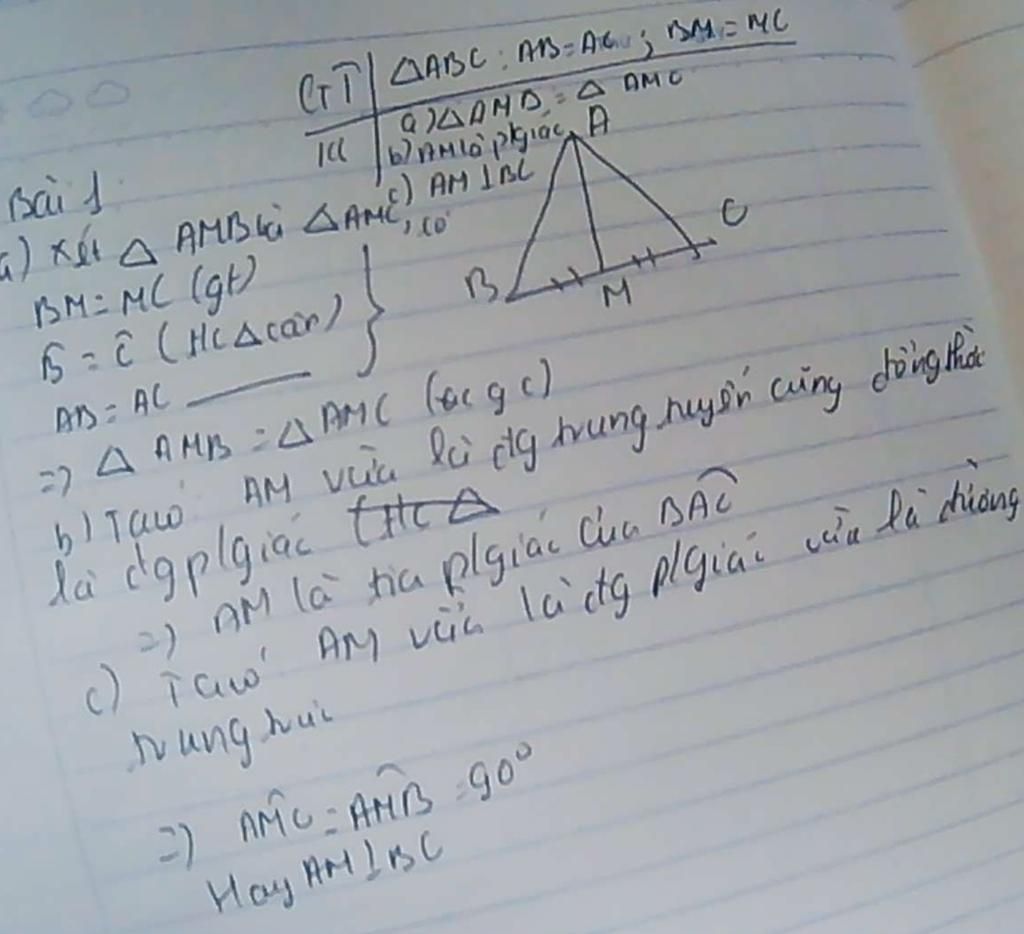 GT | △ABC : AB = AC ; BM = MC
KL | a) △AMB = △AMC
b) AM là p/giác
c) AM ⊥ BC
A
B
M
C
Bài 1
a) Xét △ AMB và △AMC, có
BM = MC (gt)
B̂ = Ĉ (HC △ cân)
AB = AC
=> △ AMB = △ AMC (c g c)
b) Ta có AM vừa là đg trung tuyến cũng đồng thời
là đg p/giác
=> AM là tia p/giác của BÂC
c) Ta có AM vừa là đg p/giác vừa là đường
trung trực
=> AM̂C = AM̂B = 90°
Hay AM ⊥ BC